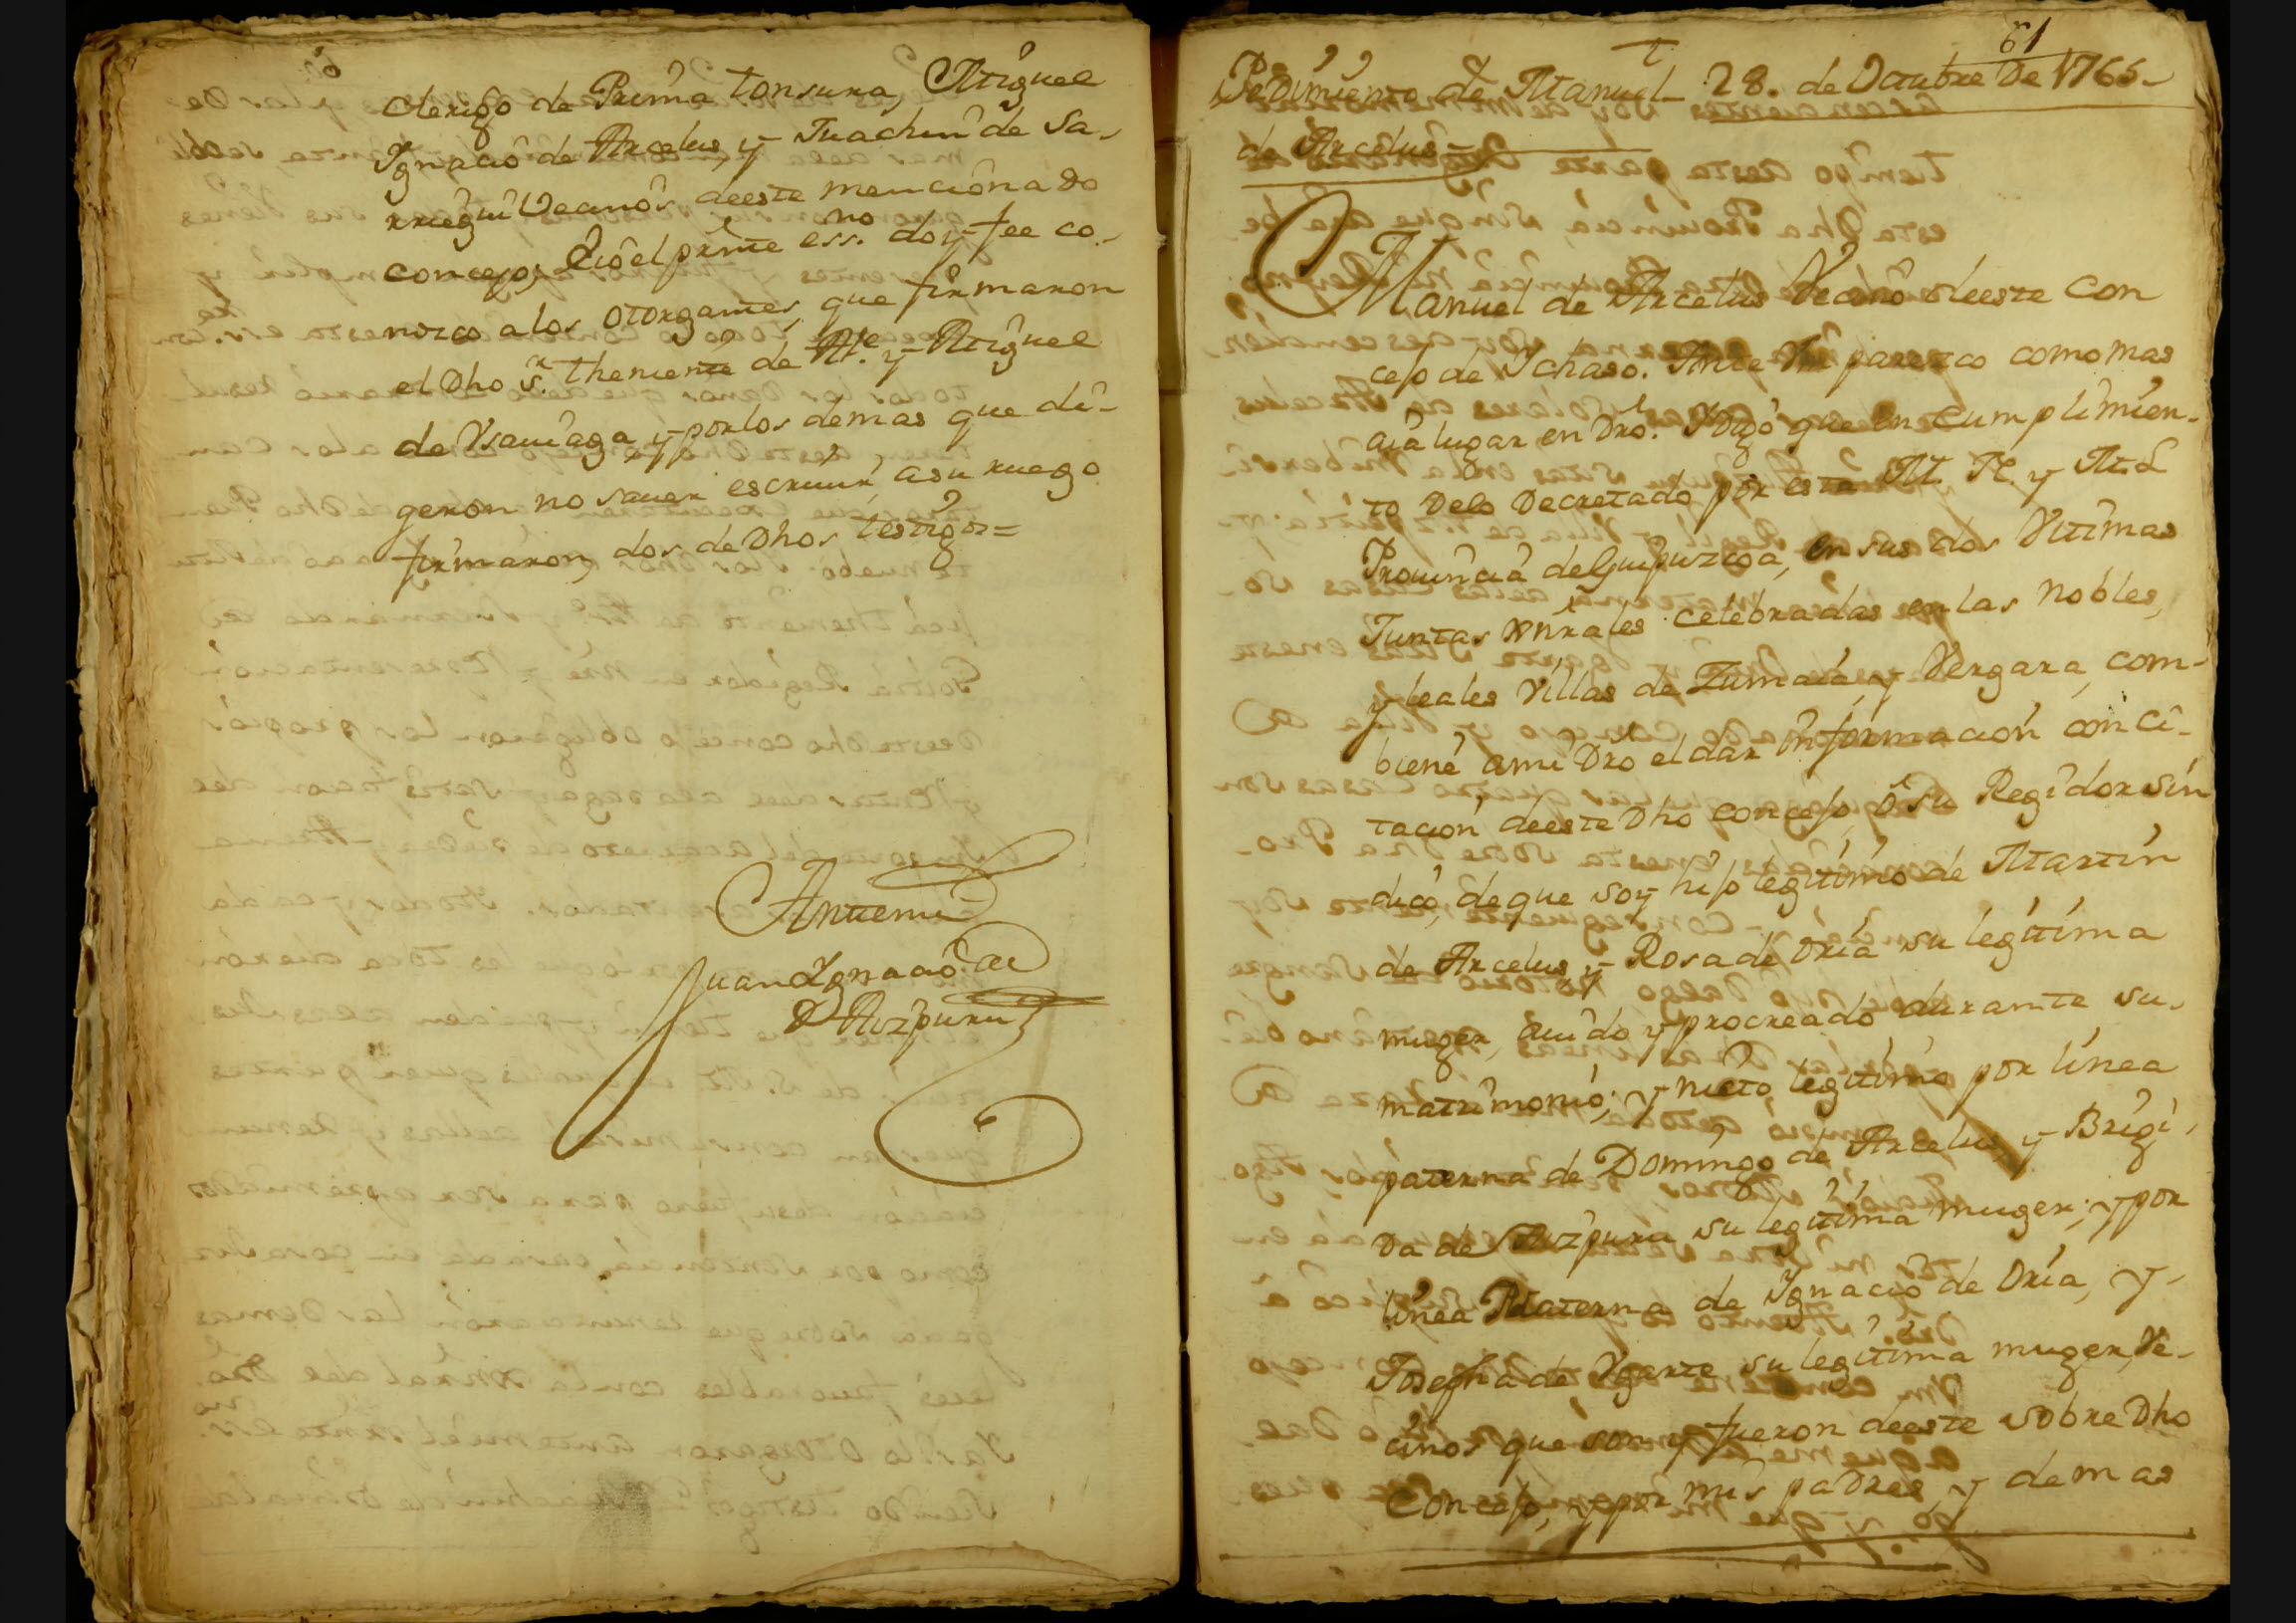 clerigo de Prima tonsura, Miguel
Ygnacio de Arcelus, y Juachin de Sa-
rriegui Vecinos deeste mencionado
concejo, Éio el prnte essno doy fee co-
nozco a los otorgantes, que firmaron
el Dho Sr. theniente de Alce. y Miguel
de Vsauiaga, y por los demas que di-
geron no sauer escriuir, a su ruego
firmaron, dos de Dhos testigos=
Antemi
Juan Ygnacio de
Aizpuru
61
Pedimiento de Manuel 28. de Octubre De 1765-
de Arcelus-
Manuel de Arcelus Vecino deeste Con
cejo de Ychaso. Ante Vm parezco como mas
aia lugar en Dro. Y Digo que en Cumplimien-
to Delo Decretado por esta M. N. y M. L
Prouincia de Guipuzcoa, en sus dos Vltimas
Juntas xnrales celebradas en las Nobles,
y leales Villas de Zumaia, y Vergara, com-
biene ami Dro el dar informacion con Ci-
tacion deeste Dho concejo, ô su Regidor sin
dico, de que soy hijo legitimo de Martin
de Arcelus, y Rosa de Oria su legitima
muger, auido y procreado durante su
matrimonio; y nieto legitimo por linea
paterna de Domingo de Arcelus, y Brigi-
da de Aizpuru su legitima muger; y por
linea Materna de Ygnacio de Oria, y
Josepha de Ygarte su legitima muger, Ve-
cinos que son y fueron deeste sobre Dho
Concejo, y por mis padres, y demas